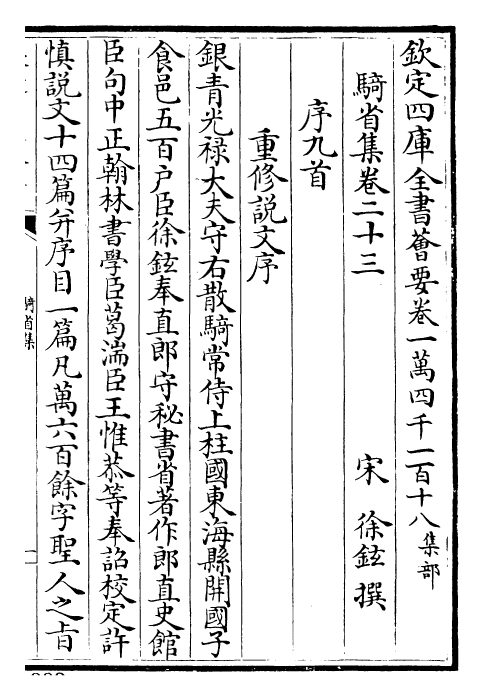 欽定四庫全書薈要卷一萬四千一百十八 集部
騎省集卷二十三 宋 徐鉉 撰
序九首
重修說文序
銀青光祿大夫守右散騎常侍上柱國東海縣開國子
食邑五百户臣徐鉉奉直郎守秘書省著作郎直史館
臣句中正翰林書學臣葛湍臣王惟恭等奉詔校定許
慎說文十四篇并序目一篇凡萬六百餘字聖人之㫖
騎省集
一